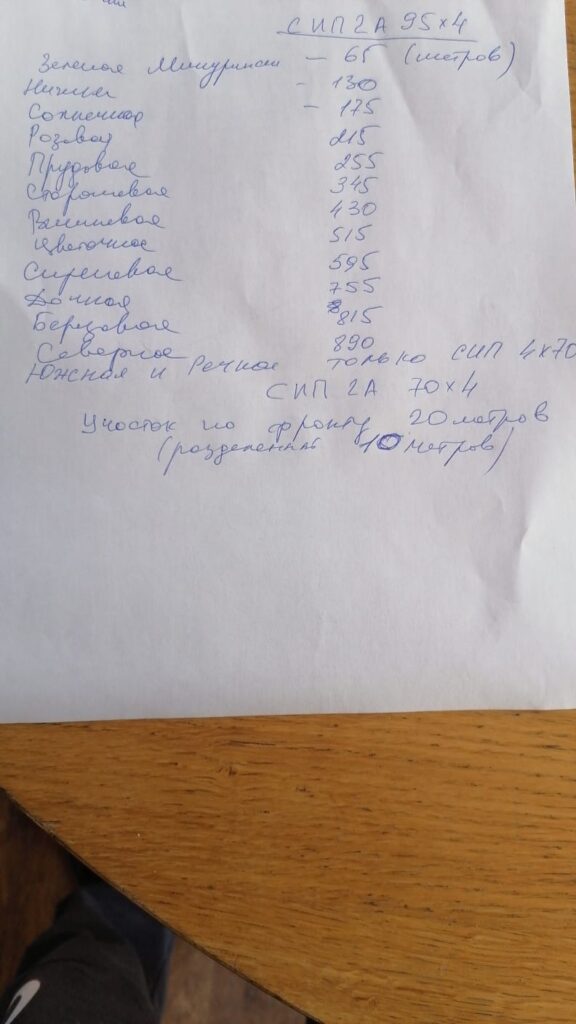 СИП 2А 95×4
Зеленая Мичурински – 65 (метров)
Нижняя – 130
Солнечная – 175
Розовая 215
Прудовая 255
345
Вишневая 430
Цветочное 515
Сиреневая 595
Дачная 755
Березовая 815
Северное 890
Южная и Речное только СИП 4×70
СИП 2А 70×4
Участок по фронту 20 метров
(разделенный 10 метров)